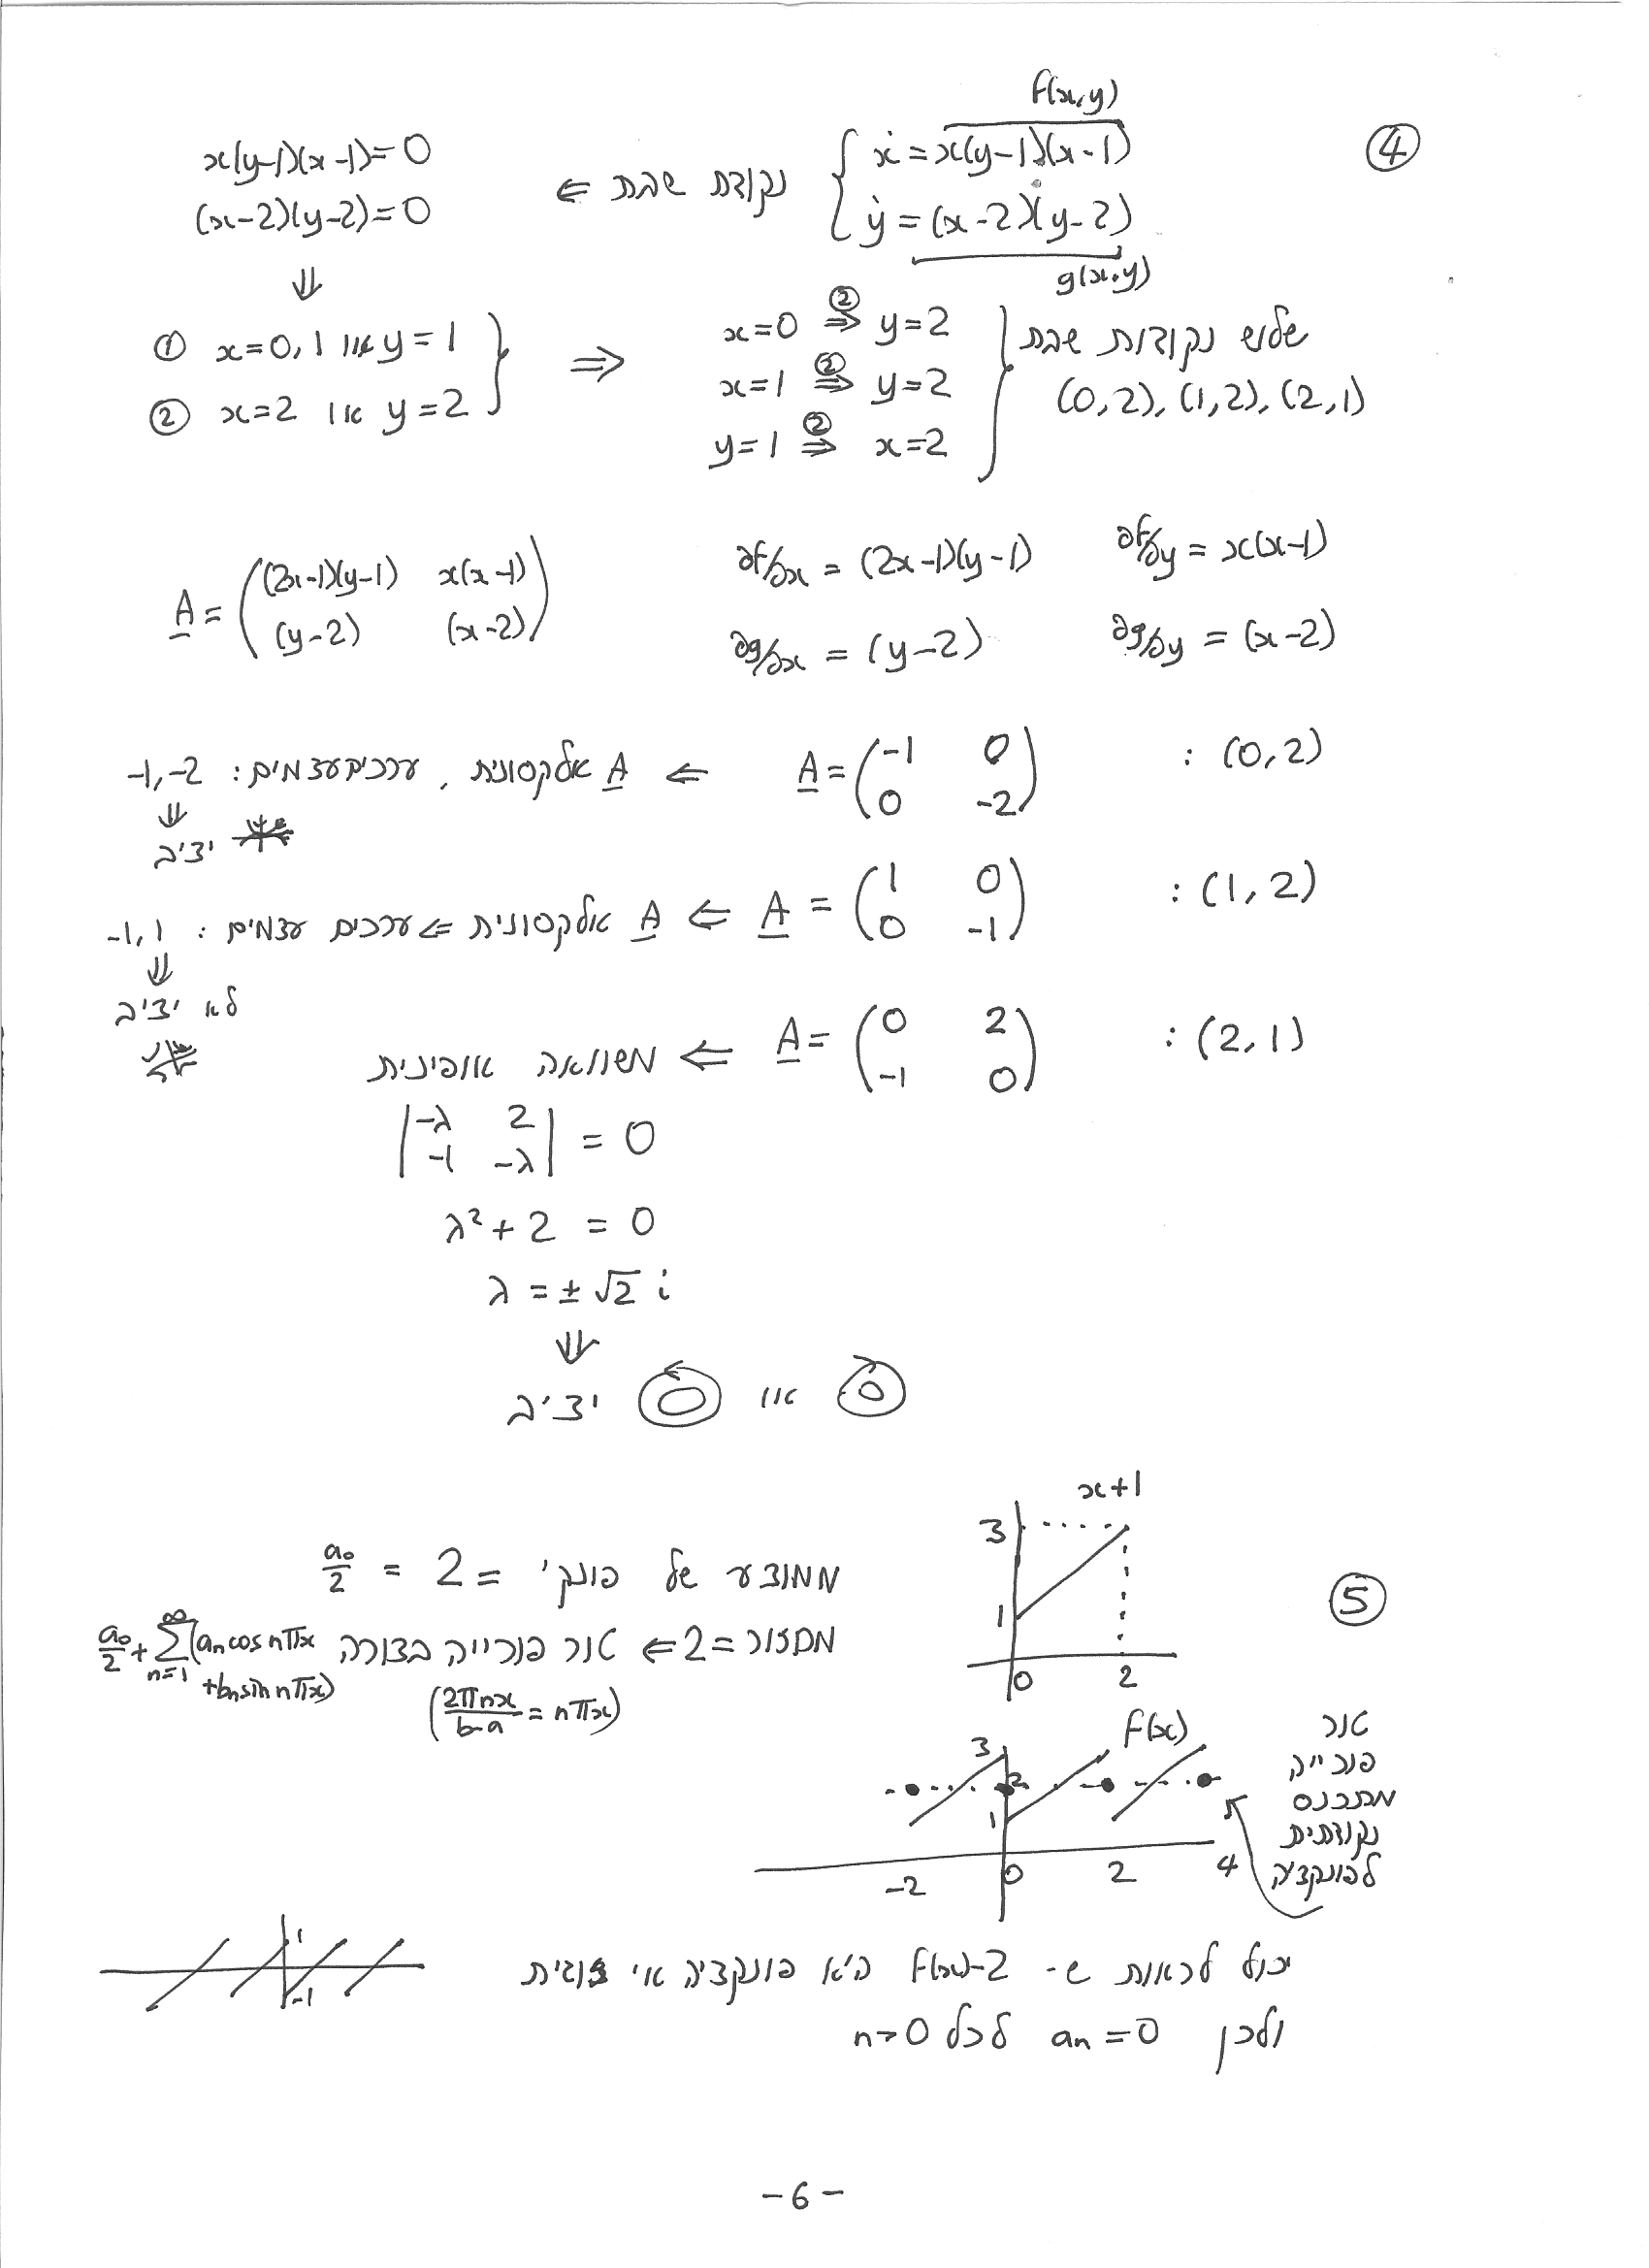 ④
f(x,y)
ẋ = x(y-1)(x-1)
ẏ = (x-2)(y-2)
g(x,y)
נקודת שבת ⇐
x(y-1)(x-1)=0
(x-2)(y-2)=0
⇓
① x=0,1 או y=1
② x=2 או y=2
⇒
x=0 ②⇒ y=2
x=1 ②⇒ y=2
y=1 ②⇒ x=2
שלוש נקודות שבת
(0,2), (1,2), (2,1)
∂f/∂x = (2x-1)(y-1) ∂f/∂y = x(x-1)
∂g/∂x = (y-2) ∂g/∂y = (x-2)
A = ( (2x-1)(y-1) x(x-1)
(y-2) (x-2) )
(0,2) : A = ( -1 0
0 -2 ) ⇐ A אלקסונית, ערכים עצמים : -1,-2
⇓
יציב
(1,2) : A = ( 1 0
0 -1 ) ⇐ A אלקסונית ⇐ ערכים עצמים : -1,1
⇓
לא יציב
(2,1) : A = ( 0 2
-1 0 ) ⇐ משוואה אופינית
| -λ 2
-1 -λ | = 0
λ² + 2 = 0
λ = ± √2 i
⇓
או יציב
⑤
x+1
3
1
0 2
ממוצע של פונק' = 2 = a₀/2
מחזור = 2 ⇐ טור פורייה בצורה a₀/2 + ∑ₙ₌₁^∞ (aₙ cos nπx
+ bₙ sin nπx)
(2πnx/b-a = nπx)
f(x)
3
2
1
-2 0 2 4
טור
פורייה
מתכנס
נקודתית
לפונקציה
יכול לראות ש- f(x)-2 היא פונקציה אי זוגית
1
-1
ולכן aₙ = 0 לכל n>0
-6-